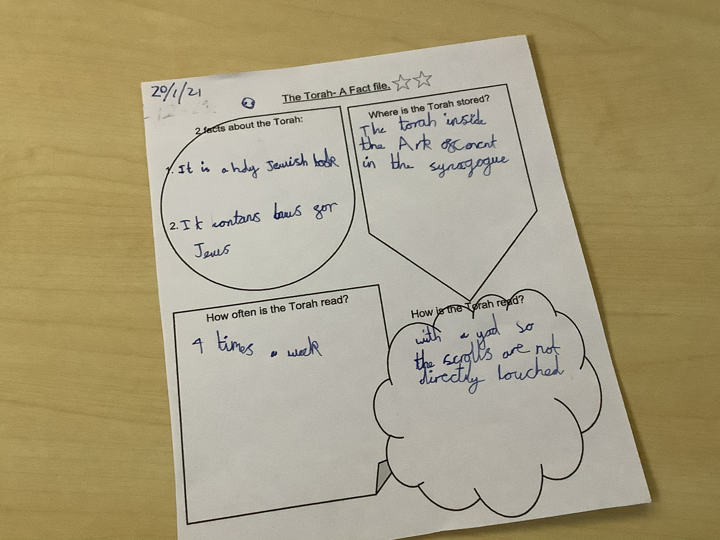 20/1/21
The Torah- A Fact file.
2 facts about the Torah:
1. It is a holy Jewish book
2. It contans laws for
Jews
Where is the Torah stored?
The torah inside
the Ark of
in the synagogue
How often is the Torah read?
4 times a week
How is the Torah read?
with a yad so
the scrolls are not
directly touched